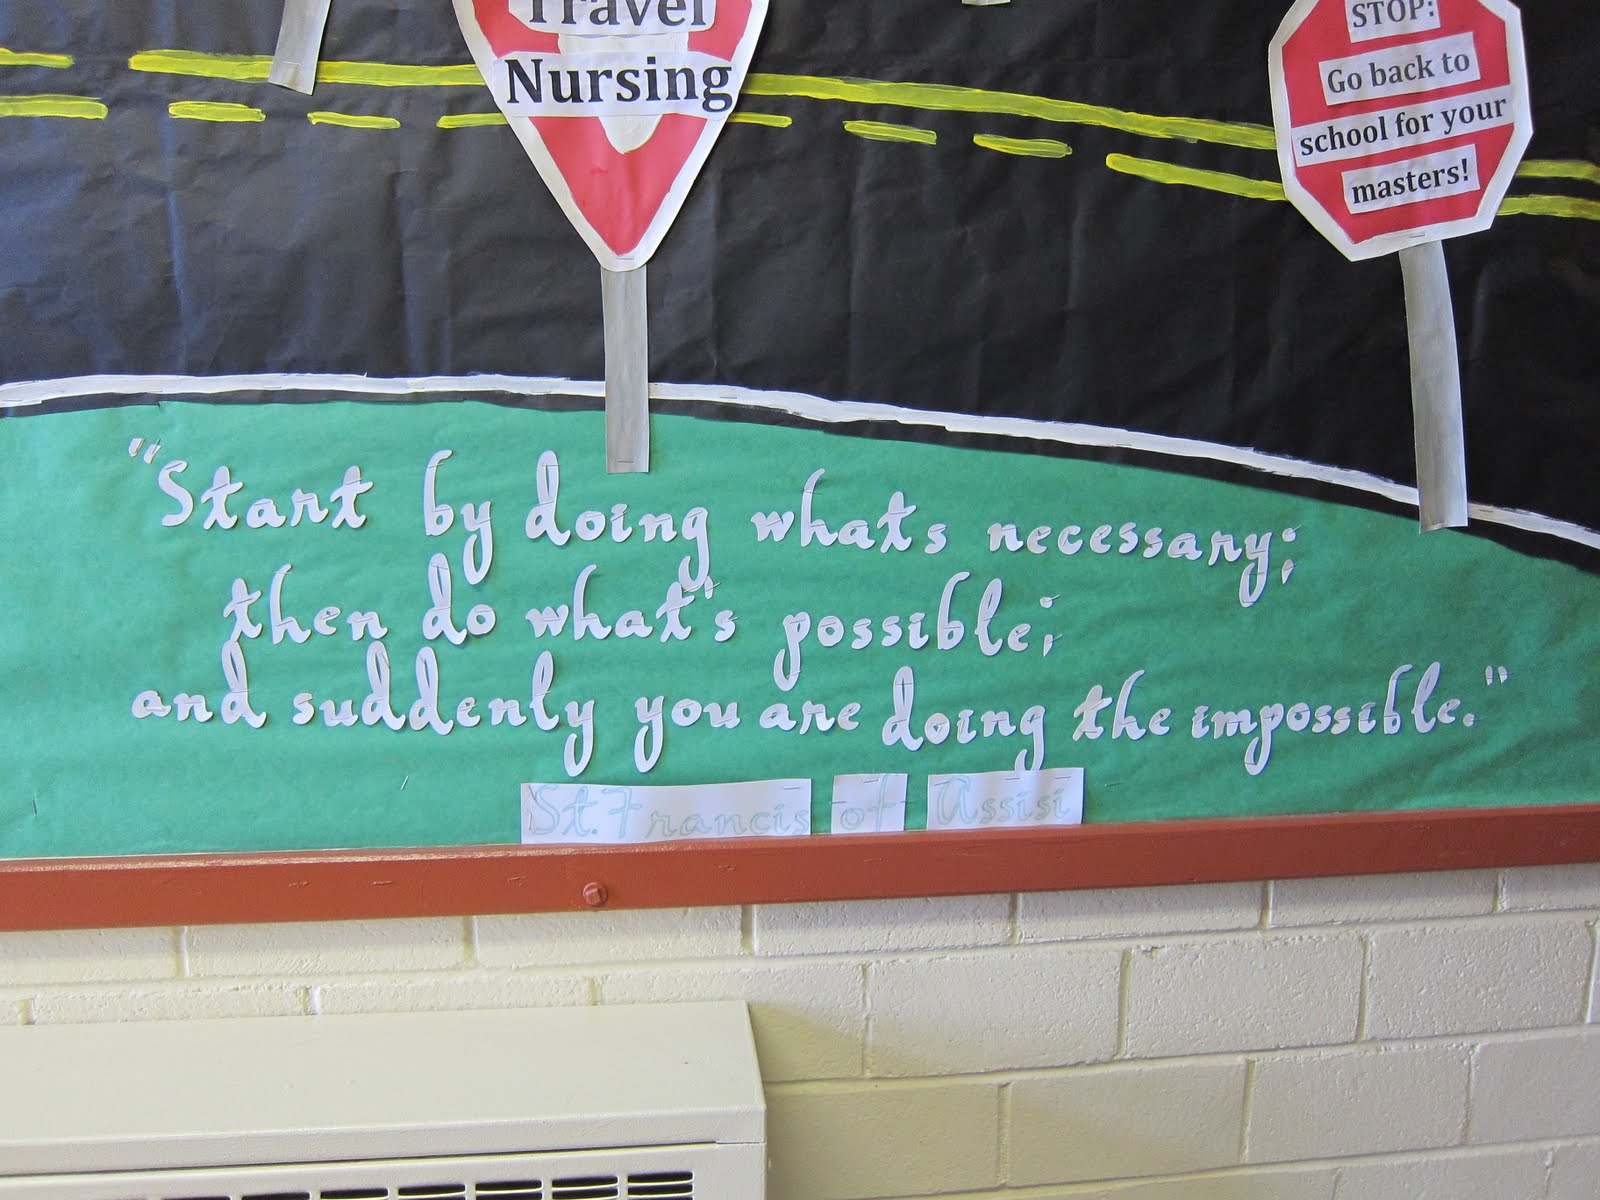 Travel
Nursing
STOP:
Go back to
school for your
masters!
"Start by doing whats necessary;
then do what's possible;
and suddenly you are doing the impossible."
St. Francis of Assisi